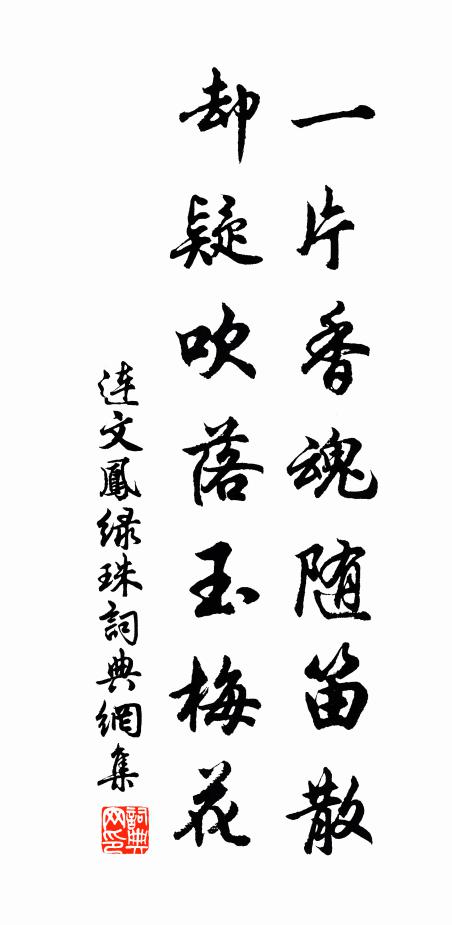 一片香魂随笛散
却疑吹落玉梅花
连文鳳绿珠詞典網集
詞典
网印